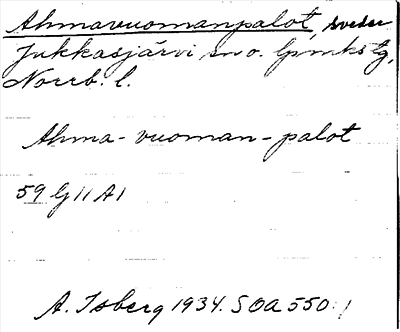 Ahmavuomanpalot, sveder
Jukkasjärvi sn o. lpmkstg,
Norrb. l.
Ahma-vuoman-palot
59 G 11 A 1
A. Isberg 1934. SOA 550:1